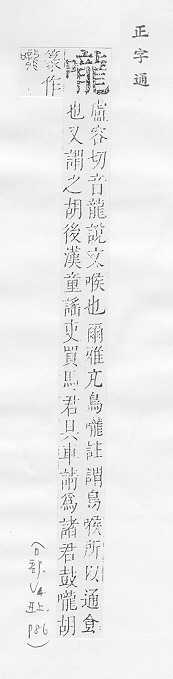 正字通
嚨
篆作
嚨
盧容切音龍說文喉也爾雅亢鳥嚨註謂鳥喉所以通食
也又謂之胡後漢童謠吏買馬君具車請爲諸君鼓嚨胡
(口部. V4 丑上. p86)